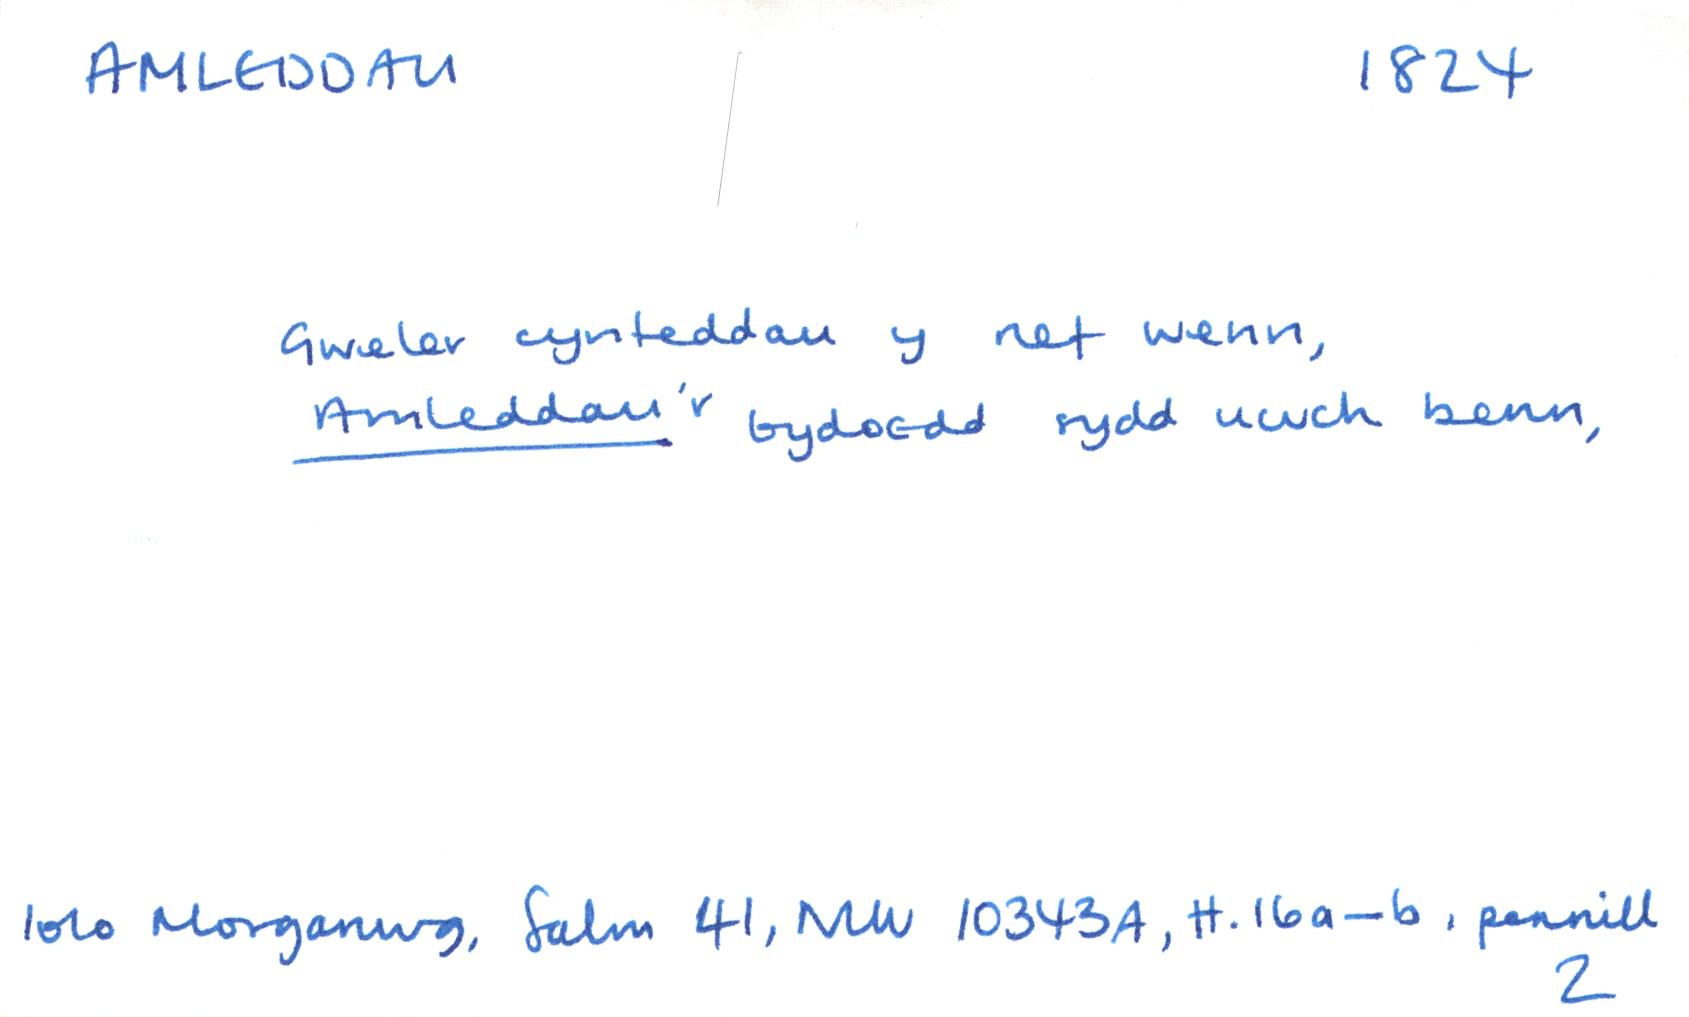 AMLEDDAU 1824
Gweler cynteddau y nef wenn,
Amleddau'r bydoedd sydd uwch benn,
Iolo Morganwg, Salm 41, NLW 10343A, tt. 16a–b, pennill
2